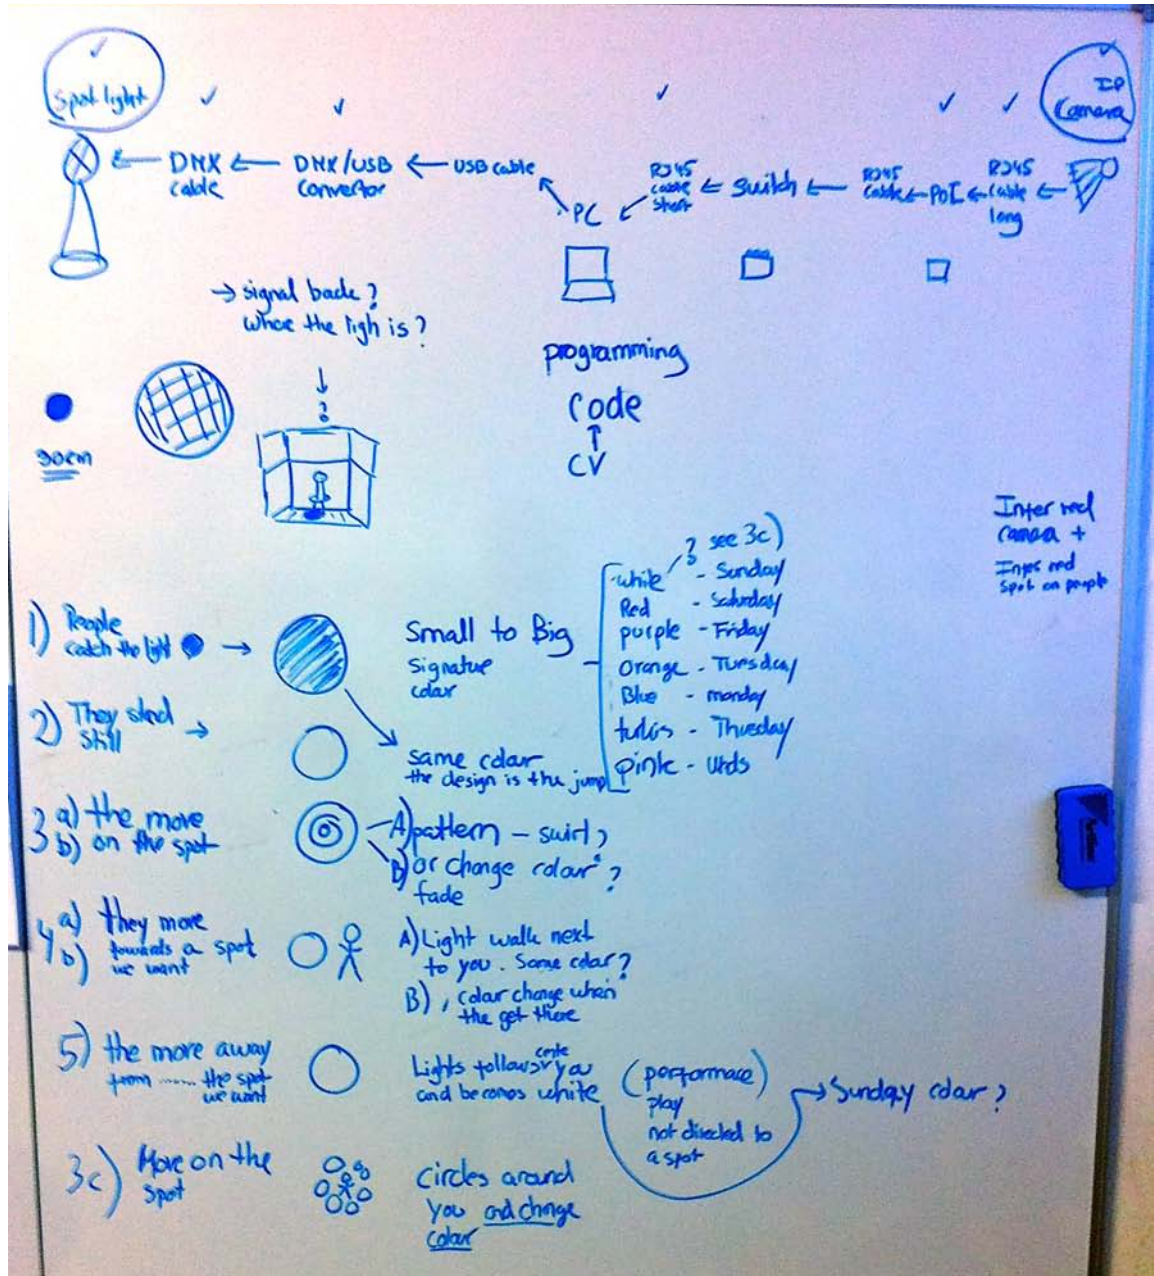 ✓ ✓ ✓ ✓ ✓ ✓ ✓
Spot light
IP
Camara
← DMX
cable
← DMX/USB
convertor
← USB cable
PC
RJ45
cable
short
← Switch ←
RJ45
cable
← PoE ←
RJ45
cable
long
→ signal back?
whoe the ligh is?
↓
?
programming
Code
↑
CV
90cm
Infer red
camea +
Infer red
Spot on people
1) People
catch the light →
Small to Big
signature
colar
? see 3c)
white - Sunday
Red - Saturday
purple - Friday
orange - Tuesday
Blue - monday
turkis - Thuesday
pink - Weds
2) They stad
still →
same colar
the design is the jump
3 a) the move
b) on the spot
A) pattern - swirl?
B) or change colour?
fade
4 a) they more
b) towards a spot
we want
A) Light walk next
to you. Same colar?
B), colar change when
the get there
5) the more away
from ...... the spot
we want
Lights follows you
and becomes white
(performace)
play
not directed to
a spot
→ Sunday colar?
3c) Move on the
spot
circles around
you and change
colar